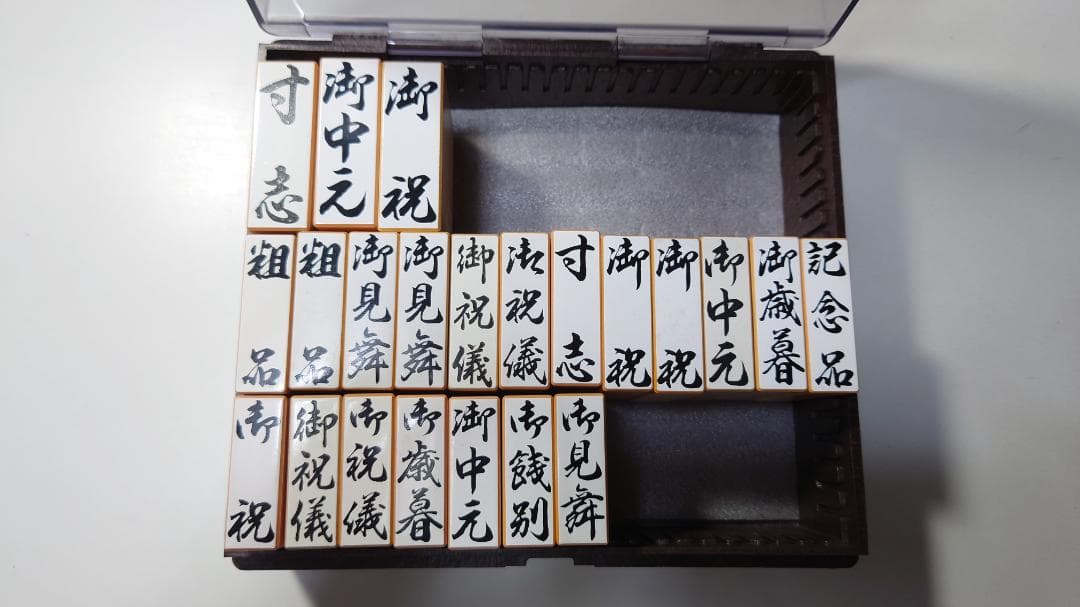 寸志
御中元
御祝
粗品
粗品
御見舞
御見舞
御祝儀
御祝儀
寸志
御祝
御祝
御中元
御歳暮
記念品
御祝
御祝儀
御祝儀
御歳暮
御中元
御餞別
御見舞